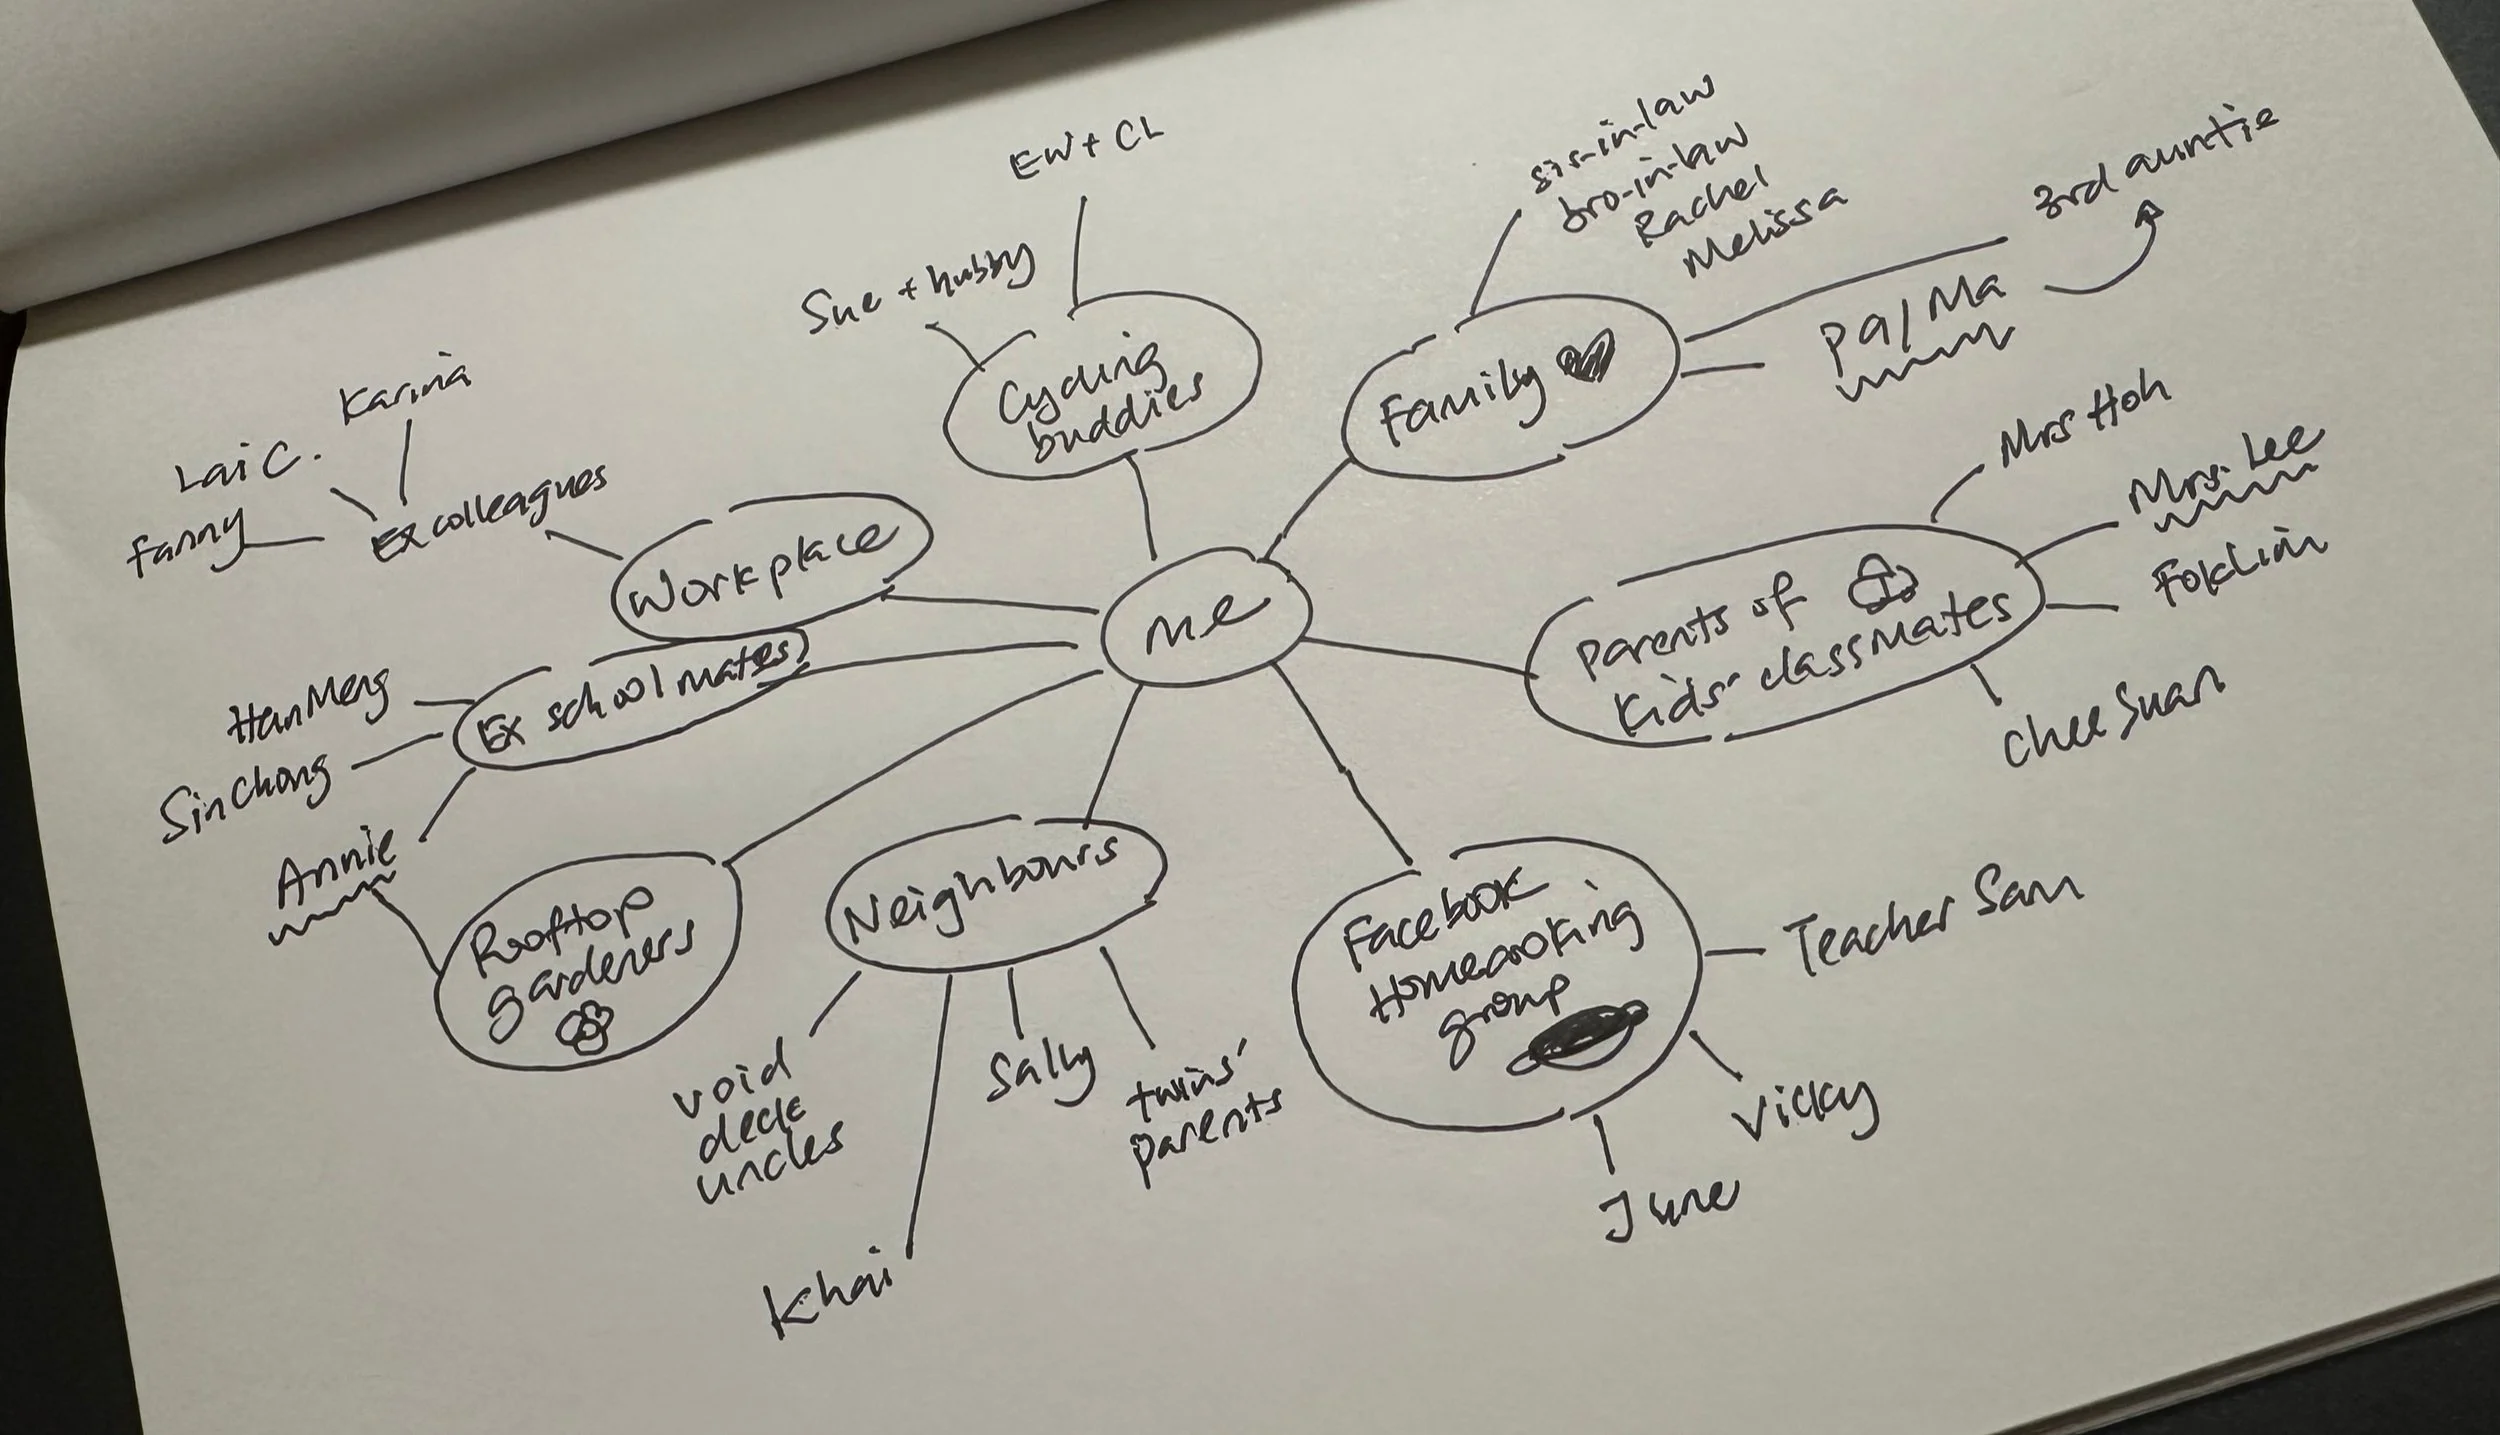 EW + CL
Sue + hubby
Cycling
buddies
sis-in-law
bro-in-law
Rachel
Melissa
3rd auntie
Pa/Ma
Family
Karina
Lai C.
Fanny
Ex colleagues
Workplace
me
Mrs Hoh
Mrs. Lee
FokLim
CheeSuan
Parents of
Kids' classmates
Ex schoolmates
HanMeng
SinChong
Annie
Rooftop
gardeners
Neighbours
void
deck
uncles
Khai
Sally
twins'
parents
Facebook
Homecooking
group
Teacher Sam
Vicky
June